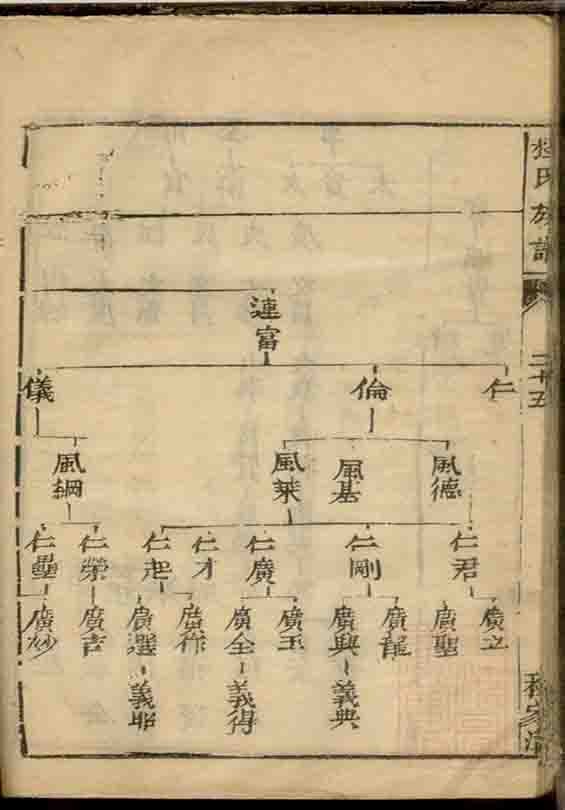 氏族譜
二十五
連富
仁
倫
儀
風德
風基
風萊
風綱
仁君
仁剛
仁廣
仁才
仁起
仁榮
仁壘
廣立
廣聖
廣龍
廣興
廣玉
廣全
廣作
廣選
廣吉
廣妙
義典
義得
義昭